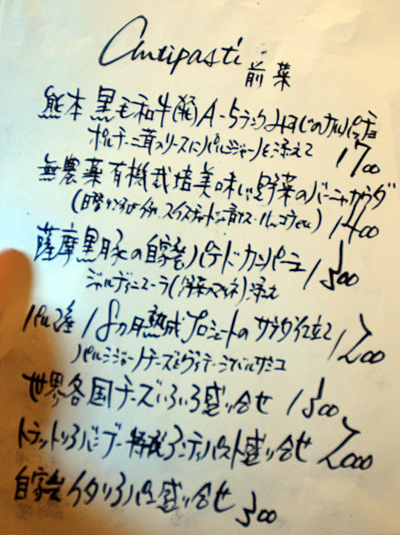 Antipasti 前菜
熊本 黒毛和牛(雌)A-5ランクみすじのカルパッチョ
ポルチーニ茸スリースにパルミジャーノを添えて 1700
無農薬有機栽培美味しい野菜のバーニャカウダ
スイスチャード 1400
薩摩黒豚の自家製パテドカンパーニュ 1300
ジャルディニエーラ(洋菜マリネ)添え
パルマ産 18ヵ月熟成プロシュートのサラダ仕立て 1200
パルミジャーノチーズとヴィンテージバルサミコ
世界各国チーズいろいろ盛り合せ 1300
トラットリアバンブー特製アンティパスト盛り合せ 2000
自家製イタリアパン盛り合せ 300